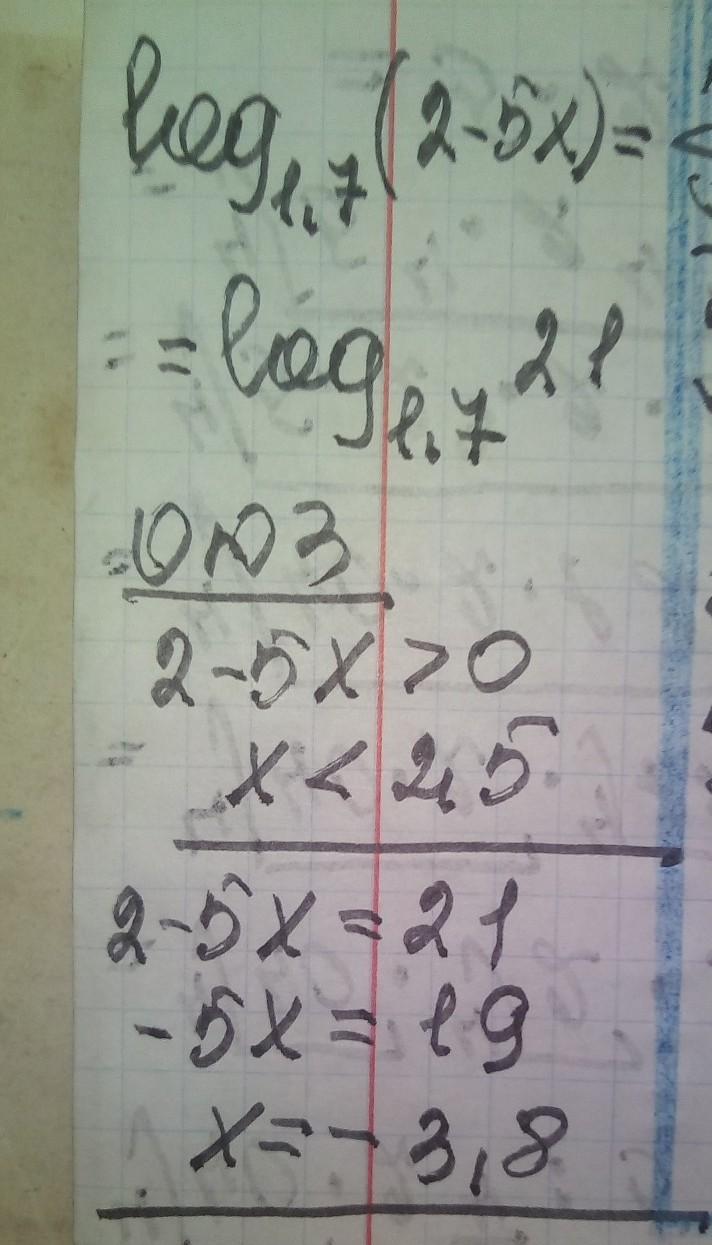 log₁,₇(2-5x)=
= log₁,₇ 21
ОДЗ
2-5x>0
x<2,5
2-5x=21
-5x=19
x=-3,8